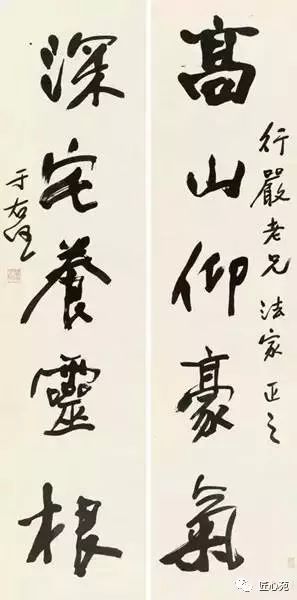 行嚴老兄法家正之
高山仰豪氣
深宅養靈根
于右任
匠心苑